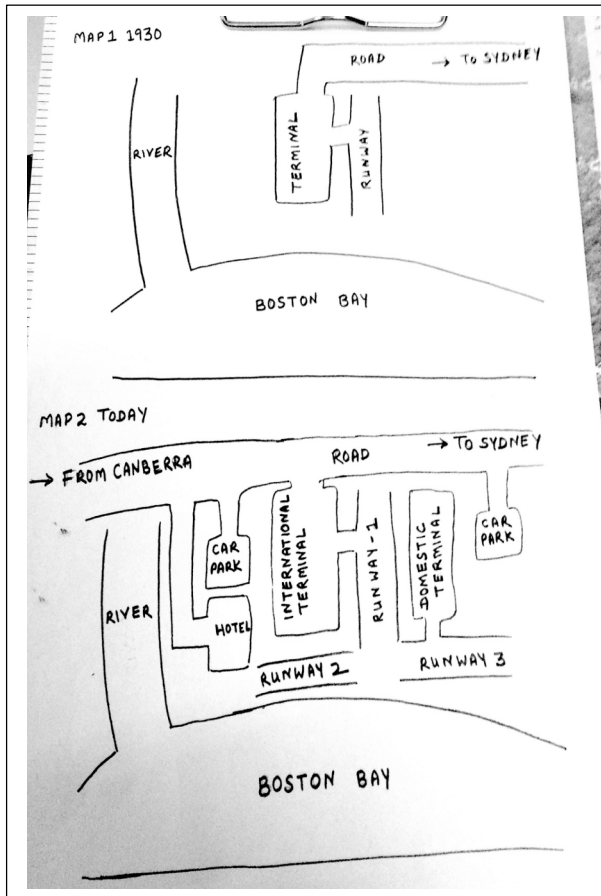 MAP 1 1930
ROAD → TO SYDNEY
RIVER
TERMINAL
RUNWAY
BOSTON BAY
MAP 2 TODAY
→ FROM CANBERRA
ROAD → TO SYDNEY
CAR
PARK
INTERNATIONAL
TERMINAL
RUNWAY-1
DOMESTIC
TERMINAL
CAR
PARK
RIVER
HOTEL
RUNWAY 2
RUNWAY 3
BOSTON BAY